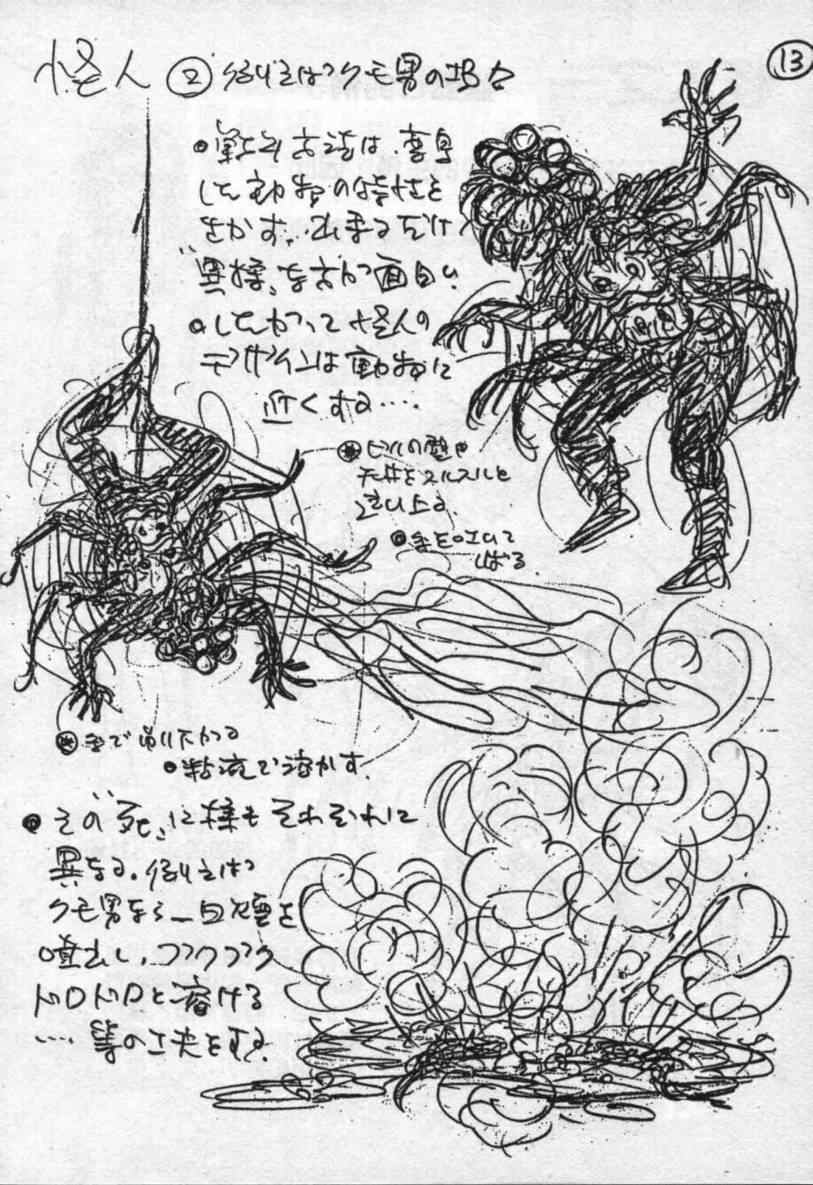 怪人 ② 例えばクモ男の場合
⑬
●戦斗方法は、変身
した動物の特性を
生かす。出来るだけ
"異様"な方が面白い
●したがって怪人の
デザインは動物に
近くする…
●ビルの壁や
天井をスルスルと
這い上る
●糸を吐いて
しばる
●糸で吊り下がる
●粘液で溶かす。
●その"死に様もそれぞれに
異なる。例えば
クモ男なら—白煙を
噴出し、ブクブク
ドロドロと溶ける
…等の工夫をする